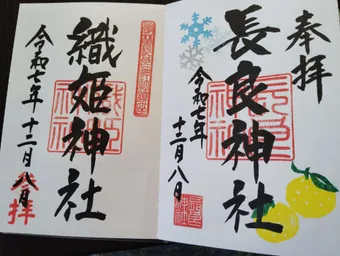 奉拝
長良神社
令和七年
十二月八日
織姫神社
令和七年
十二月八日
参拝